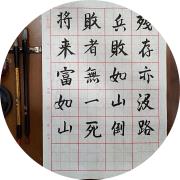 残存亦没路
兵敗如山倒
敗者無一死
将来富如山